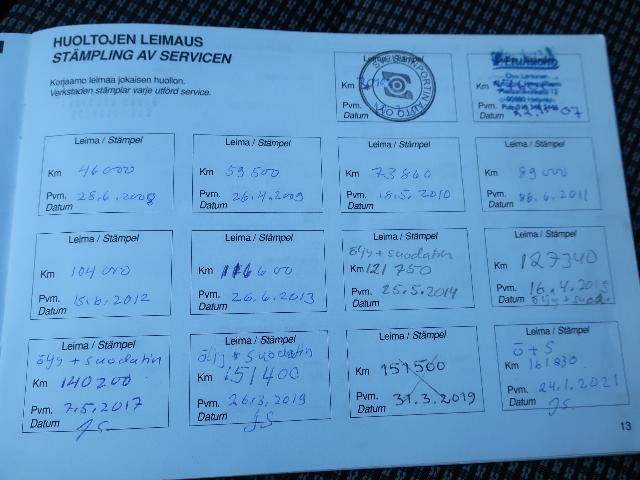 HUOLTOJEN LEIMAUS
STÄMPLING AV SERVICEN
Korjaamo leimaa jokaisen huollon.
Verkstaden stämplar varje utförd service.
Leima / Stämpel
Km
Pvm.
Datum
AUTO OY
Km
Pvm.
Datum
07
Leima / Stämpel
Km 46000
Pvm. 28.6.2008
Datum
Leima / Stämpel
Km 59500
Pvm. 26.4.2009
Datum
Leima / Stämpel
Km 73860
Pvm. 18.5.2010
Datum
Leima / Stämpel
Km 89000
Pvm. 6.2011
Datum
Leima / Stämpel
Km 104000
Pvm. 15.6.2012
Datum
Leima / Stämpel
Km 116600
Pvm. 26.6.2013
Datum
Leima / Stämpel
öljy + suodatin
Km 121 750
Pvm. 25.5.2014
Datum
Leima / Stämpel
Km 127340
Pvm. 16.4.2015
Datum öljy + suod.
Leima / Stämpel
öljy + suodatin
Km 140200
Pvm. 7.5.2017
Datum JS
Leima / Stämpel
öljy + suodatin
Km 151400
Pvm. 26.3.2019
Datum JS
Leima / Stämpel
Km 151500
Pvm. 31.3.2019
Datum
Leima / Stämpel
ö + S
Km 161830
Pvm. 24.1.2021
Datum JS
13